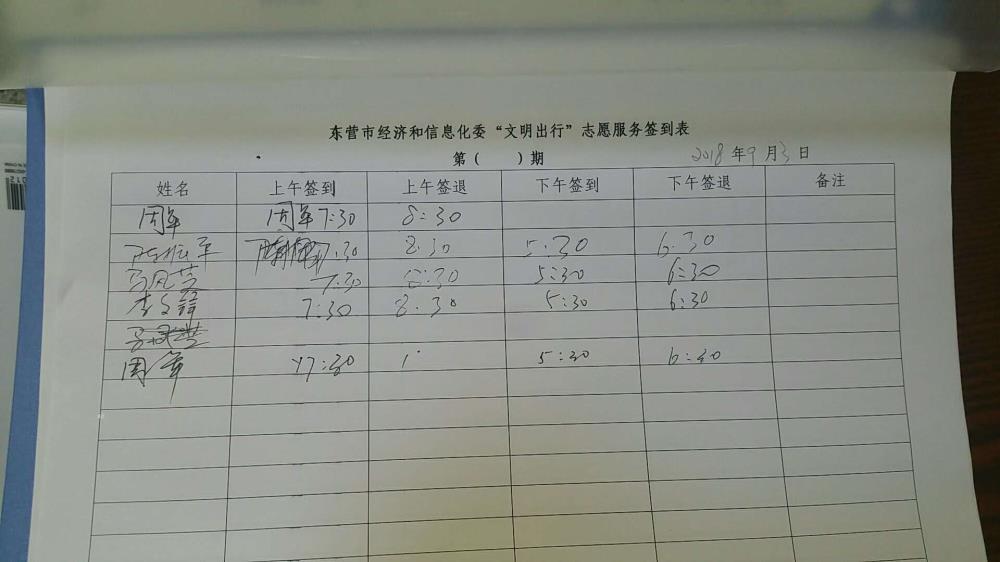 东营市经济和信息化委“文明出行”志愿服务签到表
第（ ）期 2018年9月3日
姓名 上午签到 上午签退 下午签到 下午签退 备注
周军 周军7:30 8:30
7:30 8:30 5:30 6:30
7:30 8:30 5:30 6:30
李 7:30 8:30 5:30 6:30
周军 7:30 5:30 6:30